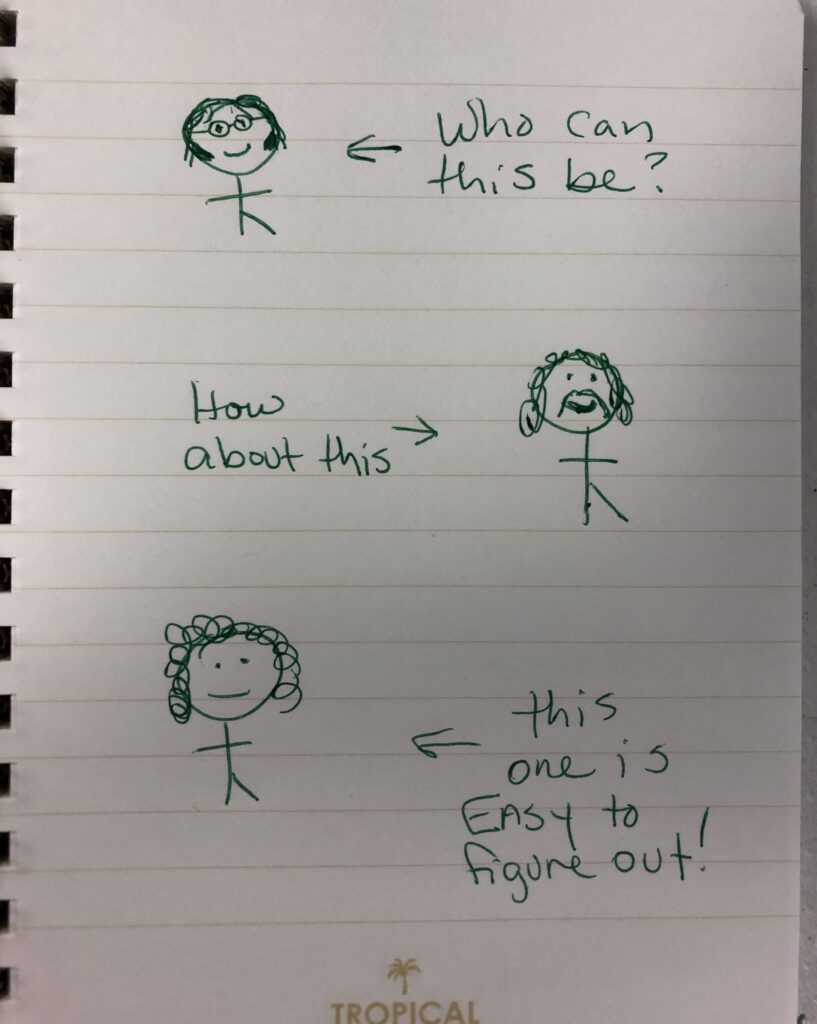 Who can
this be?
How
about this
this
one is
EASY to
figure out!
TROPICAL